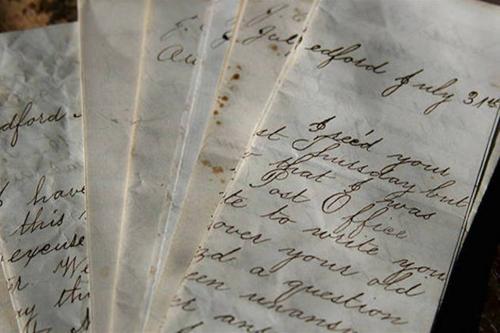 dford
I have
this
excuse
r We
y thi
J.
Au
edford July 31s
I rec'd your
st Thursday but
that I was
Post Office
te to write you
over your old
d a question
r ans